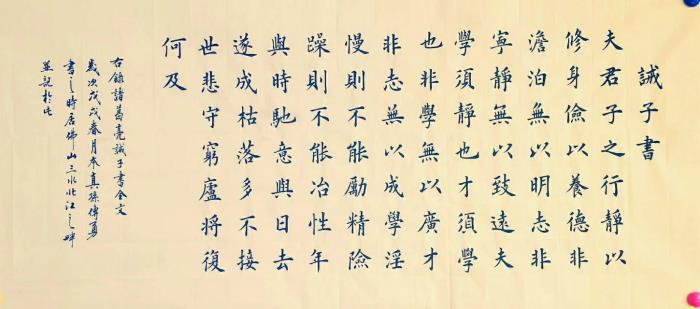 誡子書
夫君子之行靜以
修身儉以養德非
澹泊無以明志非
寧靜無以致遠夫
學須靜也才須學
也非學無以廣才
非志無以成學淫
慢則不能勵精險
躁則不能冶性年
與時馳意與日去
遂成枯落多不接
世悲守窮廬將復
何及
右錄諸葛亮誡子書全文
歲次戊戌春月本真孫偉勇
書之時居佛山三水北江之畔
並記於此